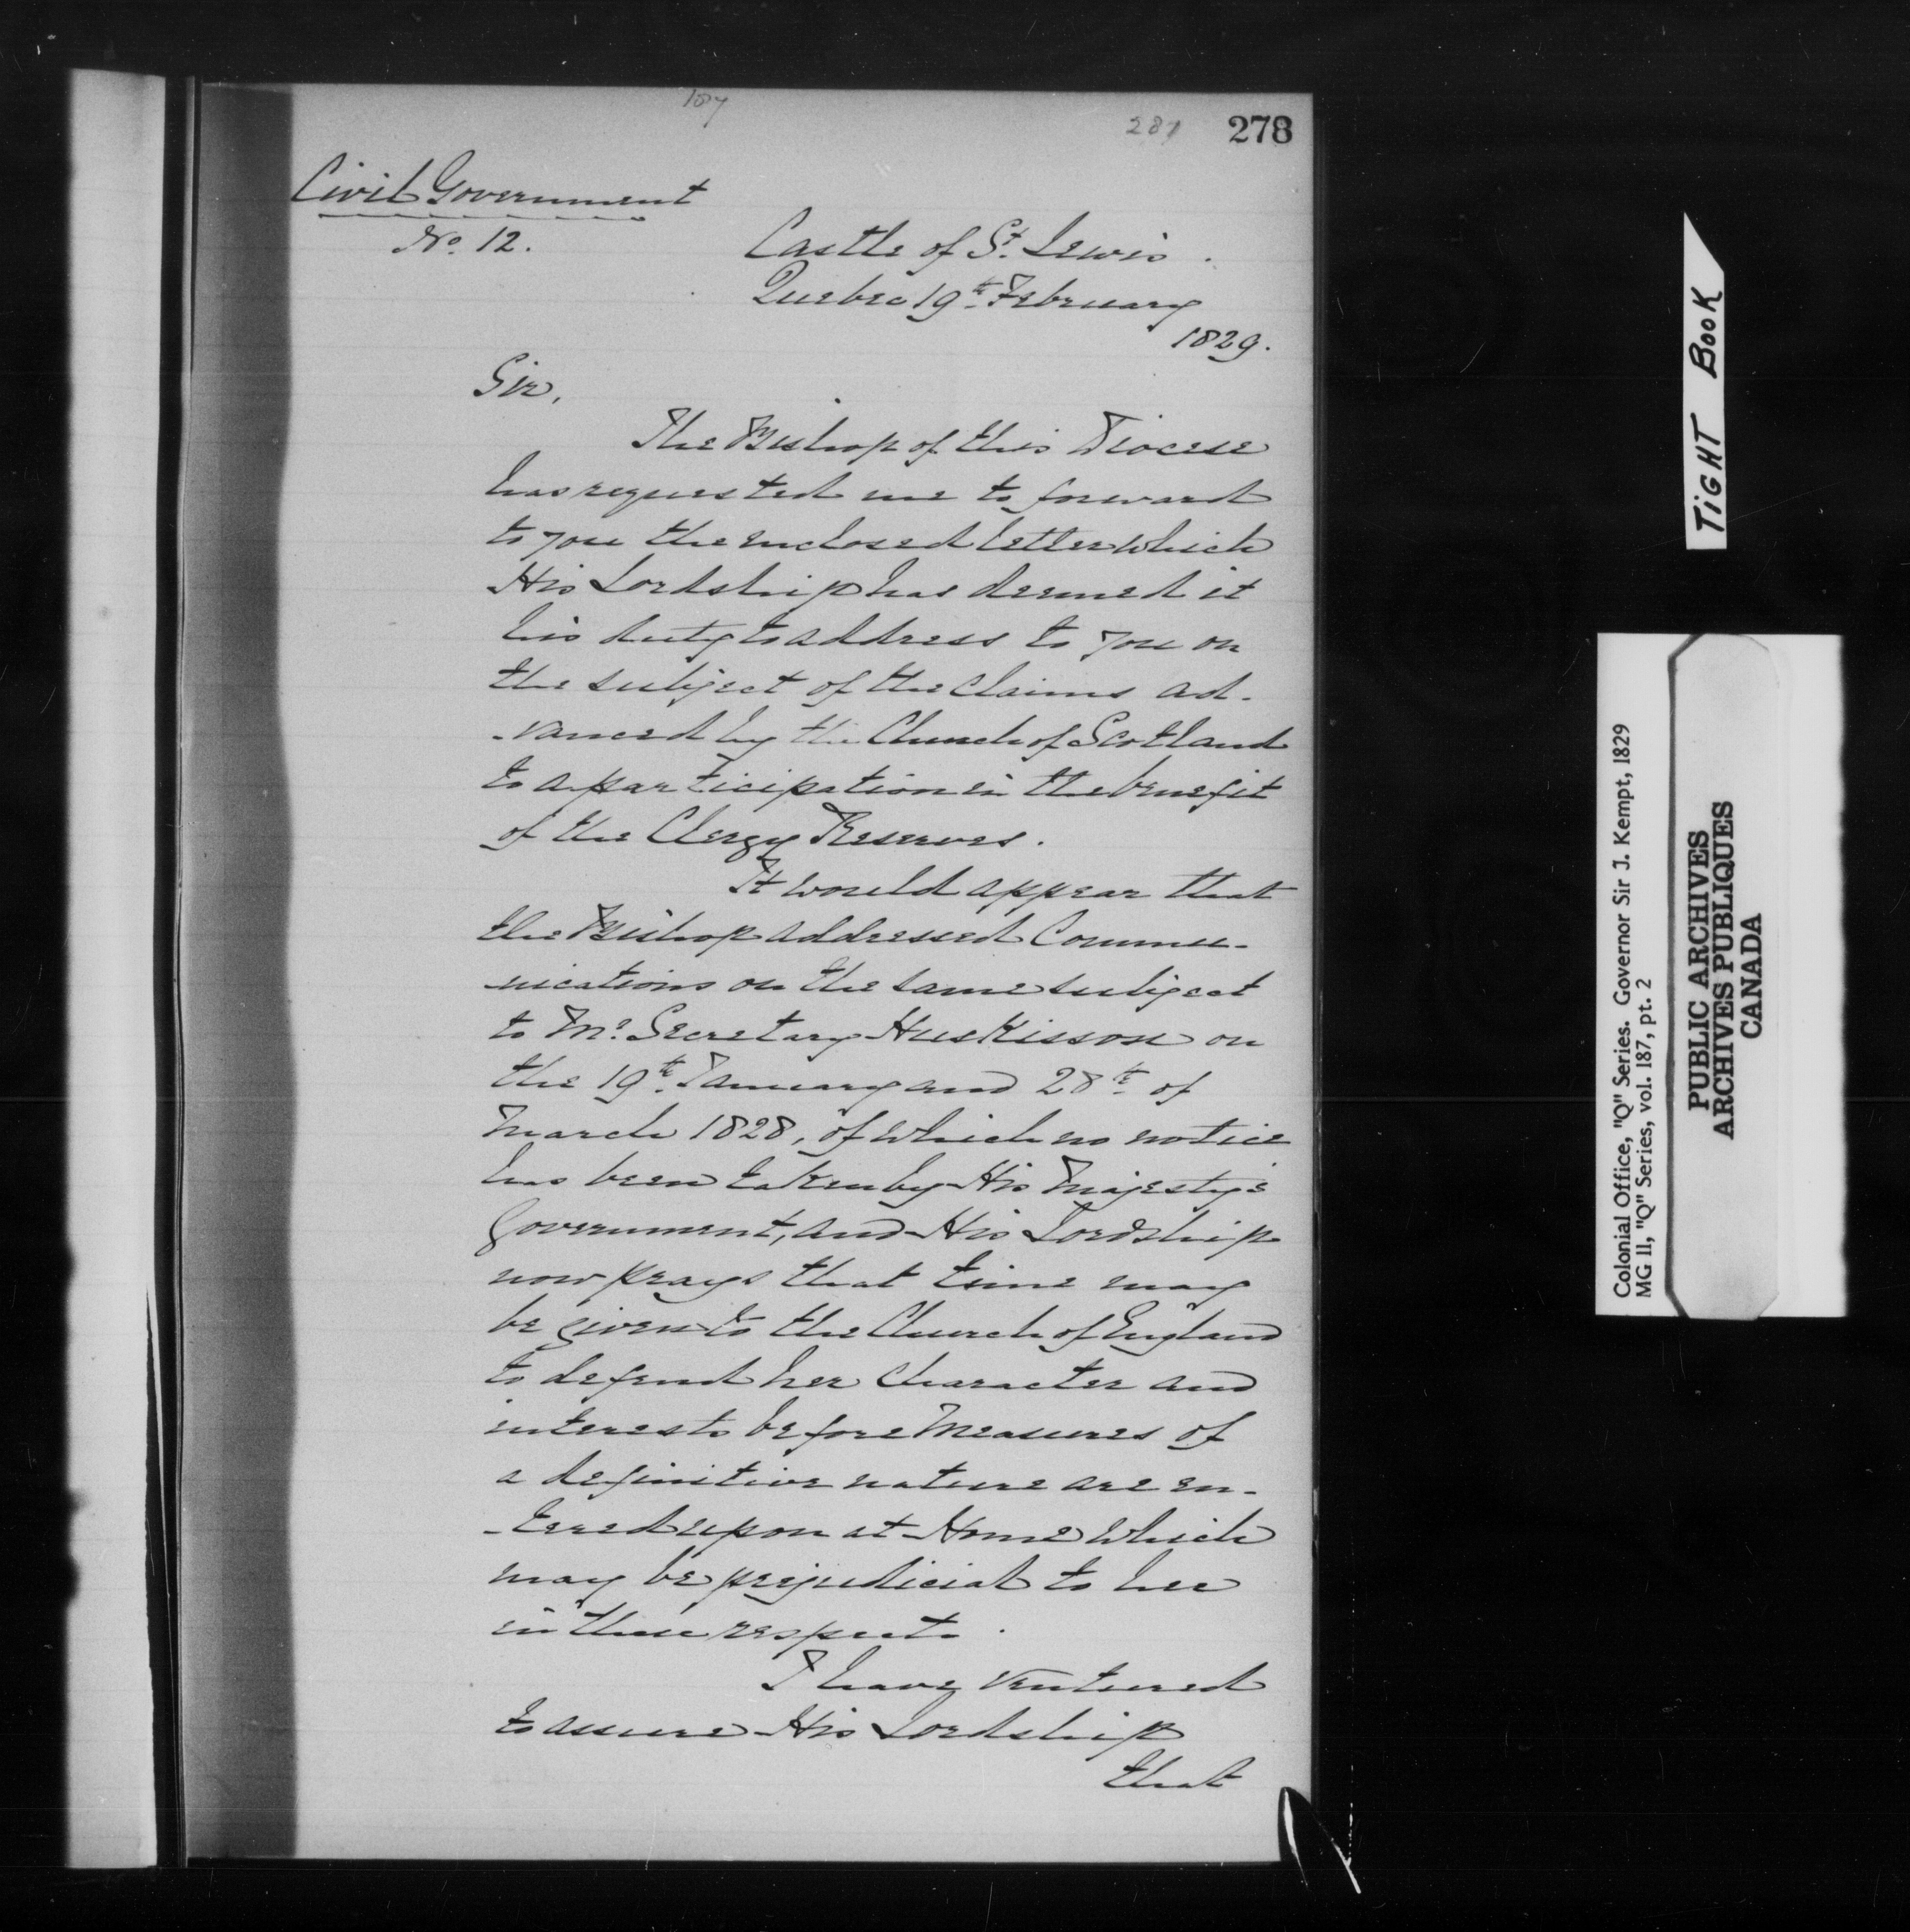 187
287 278
Civil Government
No. 12.
Castle of St. Lewis.
Quebec 19th February
1829.
Sir,
The Bishop of this Diocese
has requested me to forward
to you the enclosed letter which
His Lordship has deemed it
his duty to address to you on
the subject of the Claims ad-
-vanced by the Church of Scotland
to a participation in the benefit
of the Clergy Reserves.
It would appear that
the Bishop addressed Commu-
-nications on the same subject
to Mr. Secretary Huskisson on
the 19th January and 28th of
March 1828, of which no notice
has been taken by His Majesty's
Government, and His Lordship
now prays that time may
be given to the Church of England
to defend her Character and
interests before Measures of
a definitive nature are en-
-tered upon at Home which
may be prejudicial to her
in these respects.
I have ventured
to assure His Lordship
that
TIGHT BOOK
Colonial Office, "Q" Series. Governor Sir J. Kempt, 1829
MG 11, "Q" Series, vol. 187, pt. 2
PUBLIC ARCHIVES
ARCHIVES PUBLIQUES
CANADA